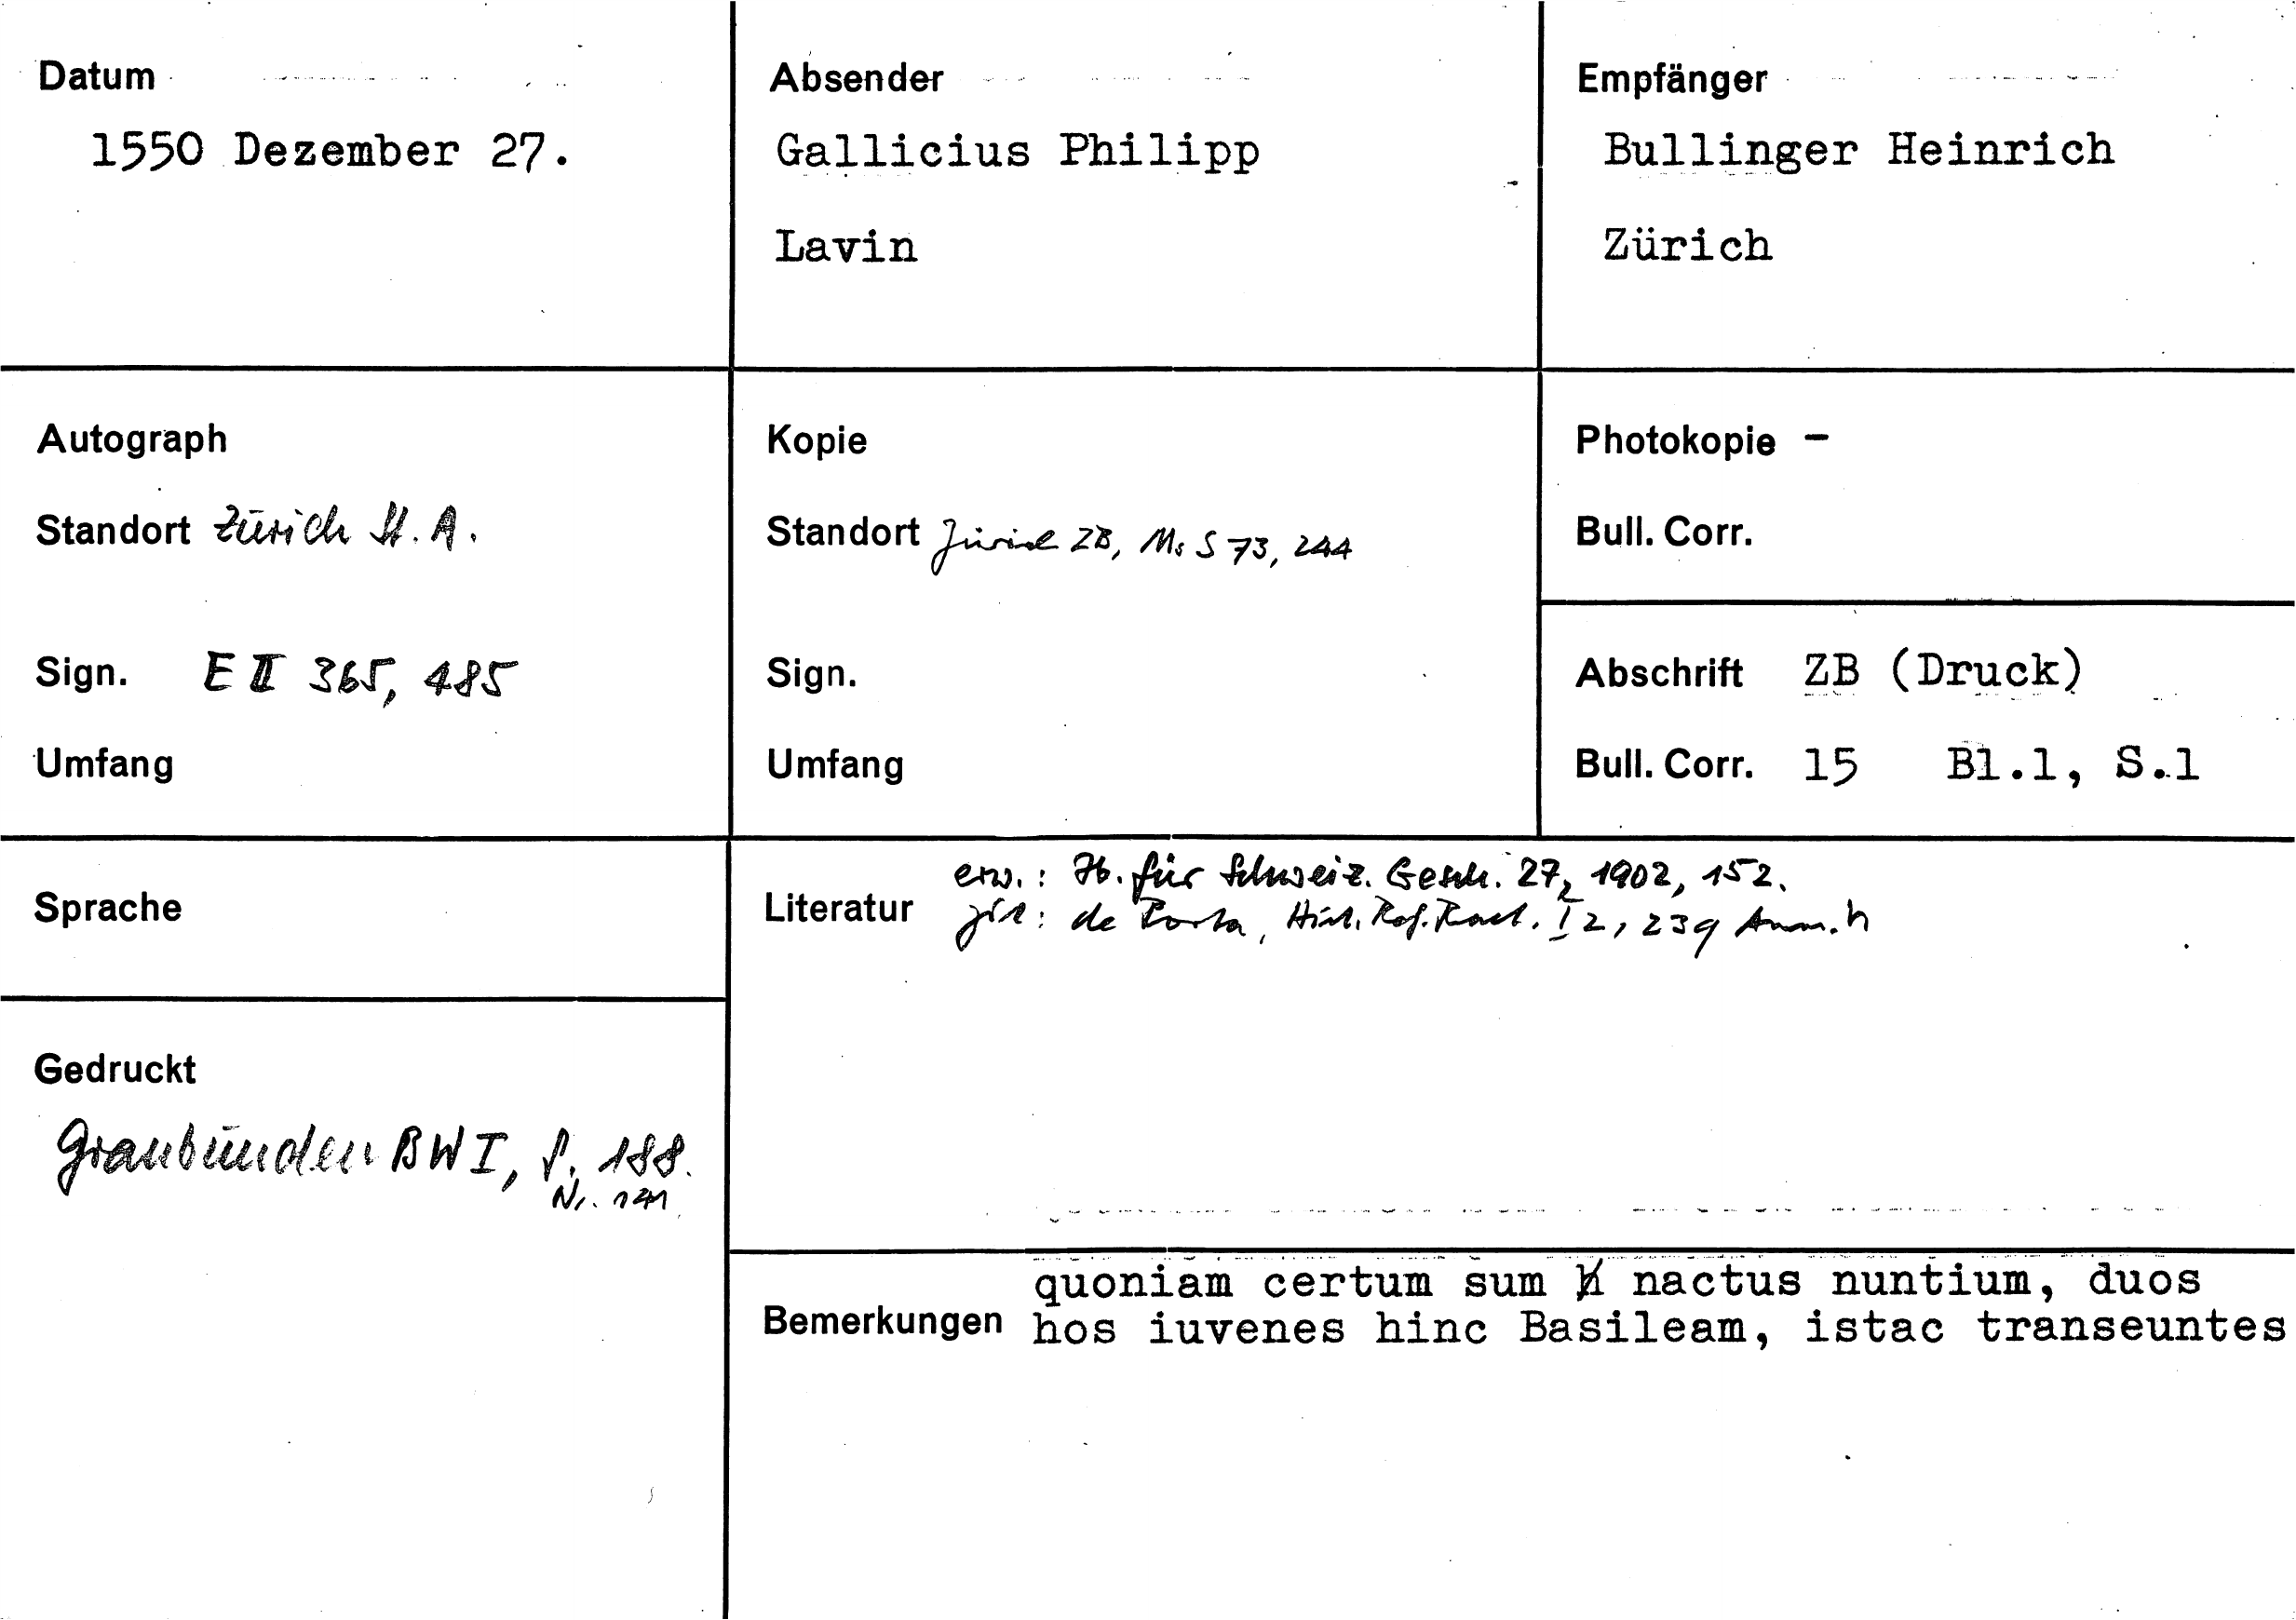 Datum
1550 Dezember 27.
Absender
Gallicius Philipp
Lavin
Empfänger
Bullinger Heinrich
Zürich
Autograph
Standort Zürich St. A.
Sign. E II 365, 485
Umfang
Kopie
Standort Zürich ZB, Ms S 73, 244
Sign.
Umfang
Photokopie -
Bull. Corr.
Abschrift ZB (Druck)
Bull. Corr. 15 Bl.1, S.1
Sprache
Gedruckt
Graubünden BW I, S. 188.
Nr. 141
Literatur
erw.: Jb. für Schweiz. Gesch. 27, 1902, 152.
zit: de Porta, Hist. Ref. Raet. I 2, 239 Anm. h
Bemerkungen
quoniam certum sum nactus nuntium, duos
hos iuvenes hinc Basileam, istac transeuntes